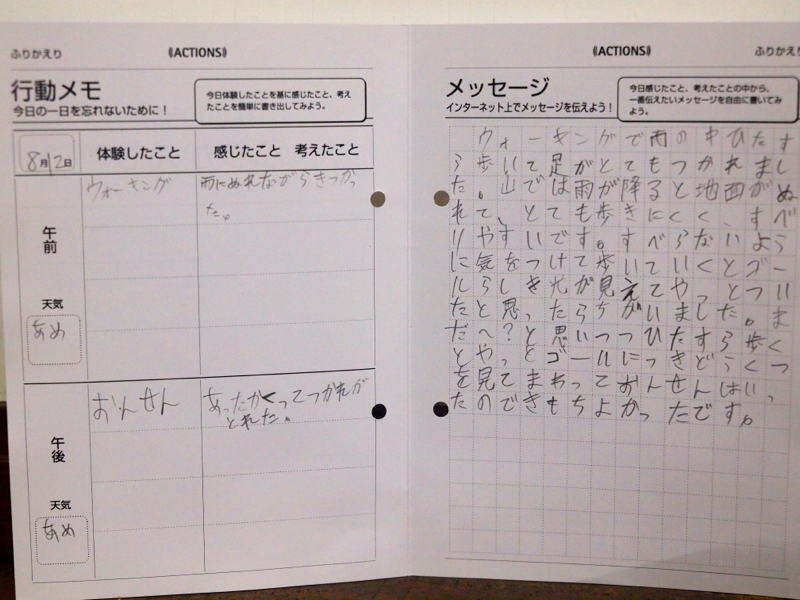 ふりかえり
《ACTIONS》
行動メモ
今日の一日を忘れないために！
今日体験したことを基に感じたこと、考え
たことを簡単に書き出してみよう。
8月12日
体験したこと
感じたこと 考えたこと
午前
ウォーキング
雨にぬれながらきつかっ
た。
天気
あめ
午後
おんせん
あったかくってつかれが
とれた。
天気
あめ
《ACTIONS》
ふりかえり
メッセージ
インターネット上でメッセージを伝えよう！
今日感じたこと、考えたことの中から、
一番伝えたいメッセージを自由に書いてみ
よう。
ウォーキングで雨の中ひたす
ら歩いて足がとてもつかれまし
た。山では雨が降ると地面がぬ
れて、とても歩きにくく、すべ
りやすいです。すべらないよう
に気をつけて歩いていくとゴー
ルらしき光が見えてやっとつい
たと思ったらちがいました。ま
だへ？と思いつつひたすら歩く
とやっとゴールにつきどうくつ
を見てまわっておんせんはいっ
たのできもちよかったです。